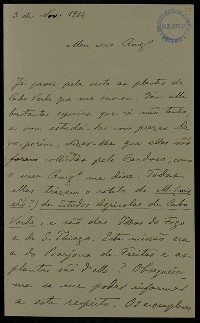 3 de Nov. 1914
Meu caro Am.º
Ja passei pela vista as plantas de
Cabo Verde que me enviou. Tem ella
bastantes especies que cá não tenho,
e vou estudá-las com prazer. De-
vo, porém, dizer-lhe que ellas não
foram colhidas pelo Cardoso, como
o meu Am.º me disse. Todas
ellas trazem o rotulo de M. (mis-
são?) de Estudos Agricolas de Cabo
Verde, e são das Ilhas do Fogo
e de S. Thiago. Esta missão era
a do Barjona de Freitas e as
plantas são d'elle? Obsequeia-
me se me poder informar
a este respeito. Os exemplares